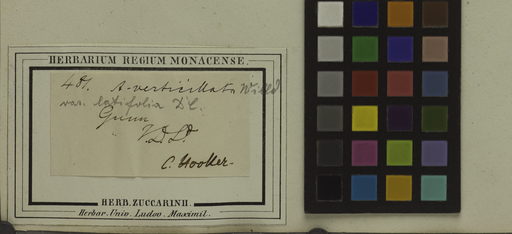 HERBARIUM REGIUM MONACENSE.
487. A. verticillata Willd
var. latifolia DC.
Gunn
V.D.L.
C. Hooker.
HERB. ZUCCARINII.
Herbar. Univ. Ludov. Maximil.